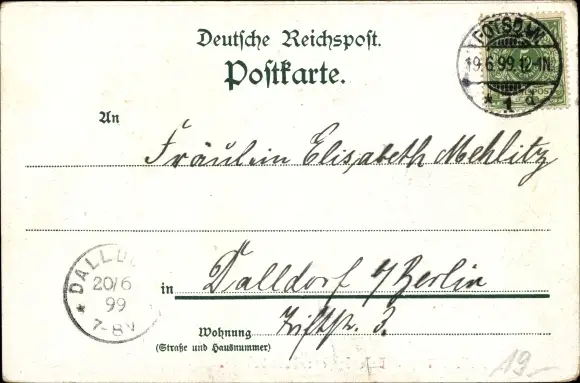 Deutsche Reichspost.
Postkarte.
POTSDAM
19.6.99.12-1N.
* 1 d
5
An
Fräulein Elisabeth Mehlitz
DALLDO
20/6
99
7-8V
in Dalldorf b/Berlin
Wohnung
(Straße und Hausnummer)
3.
19-